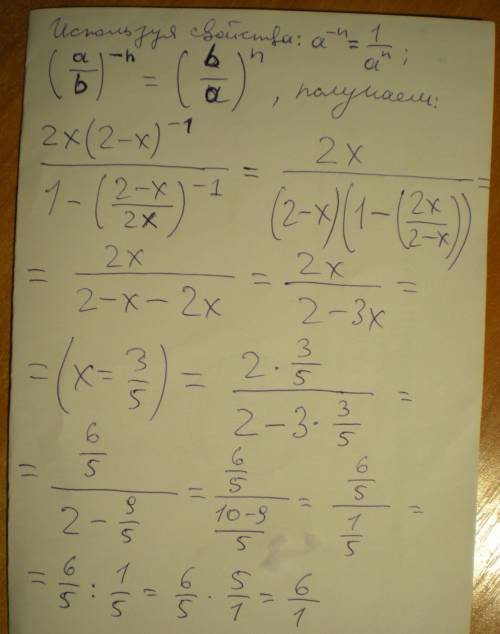 Используя свойства: a^{-n} = \frac{1}{a^n};
\left(\frac{a}{b}\right)^{-n} = \left(\frac{b}{a}\right)^n, получаем:
\frac{2x(2-x)^{-1}}{1-\left(\frac{2-x}{2x}\right)^{-1}} = \frac{2x}{(2-x)\left(1-\left(\frac{2x}{2-x}\right)\right)} =
= \frac{2x}{2-x-2x} = \frac{2x}{2-3x} =
= \left(x = \frac{3}{5}\right) = \frac{2 \cdot \frac{3}{5}}{2-3 \cdot \frac{3}{5}} =
= \frac{\frac{6}{5}}{2-\frac{9}{5}} = \frac{\frac{6}{5}}{\frac{10-9}{5}} = \frac{\frac{6}{5}}{\frac{1}{5}} =
= \frac{6}{5} : \frac{1}{5} = \frac{6}{5} \cdot \frac{5}{1} = \frac{6}{1}